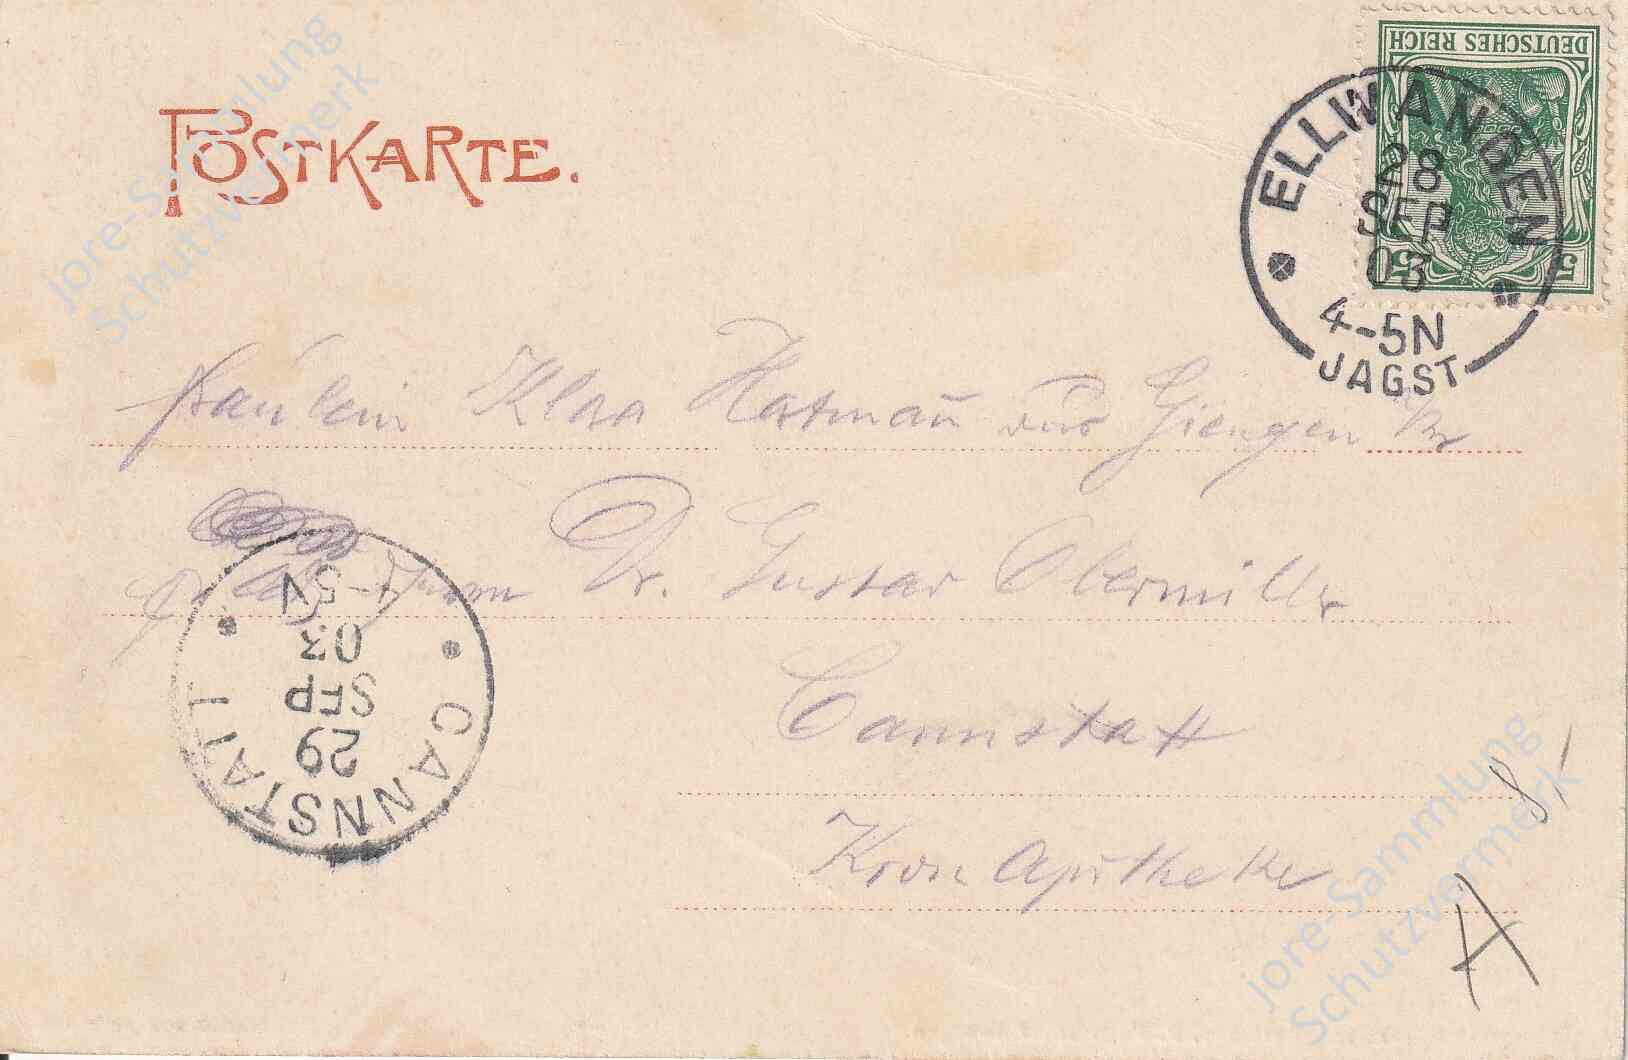 POSTKARTE.
DEUTSCHES REICH
5 5
ELLWANGEN
28
SEP
03
4-5N
JAGST
Fräulein Klara Hartmañ aus Giengen Br
Herrn Dr. Gustav Obermiller
Cannstatt
Kron Apotheke
CANNSTATT
29
SEP
03
-5V
8/
A
jore-Sammlung
Schutzvermerk
jore-Sammlung
Schutzvermerk